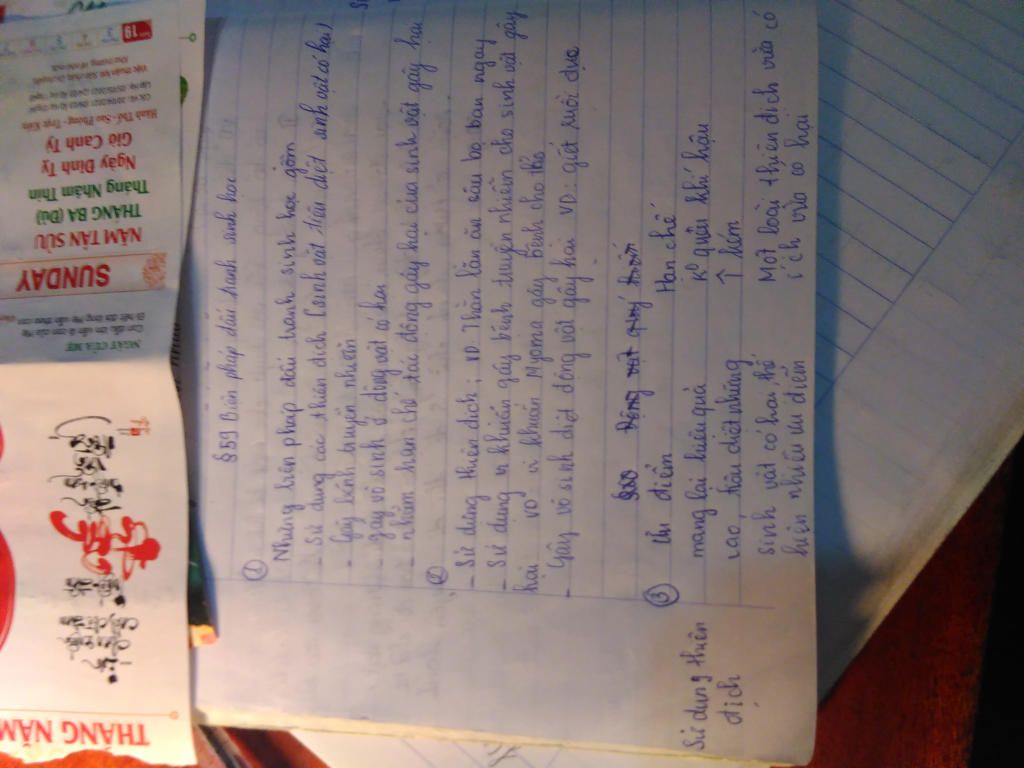 §59 Biện pháp đấu tranh sinh học
①
Những biện pháp đấu tranh sinh học gồm
- Sử dụng các thiên địch (sinh vật tiêu diệt sinh vật có hại)
- Gây bệnh truyền nhiễm
- gây vô sinh ở động vật có hại
- nhằm hạn chế tác động gây hại của sinh vật gây hại
②
- Sử dụng thiên địch; VD Thằn lằn ăn sâu bọ ban ngày
- Sử dụng vi khuẩn gây bệnh truyền nhiễm cho sinh vật gây
hại VD: vi khuẩn Myoma gây bệnh cho thỏ
- Gây vô sinh diệt động vật gây hại VD: giết ruồi đực
§60 Động vật quý hiếm
③ Ưu điểm Hạn chế
Sử dụng thiên địch
mang lại hiệu quả
cao, tiêu diệt những
sinh vật có hại, thể
hiện nhiều ưu điểm
Ko quen khí hậu
↑ kém
Một loài thiên địch vừa có
ích vừa có hại
THÁNG NĂM
NGÀY CỦA MẸ
Con dẫu lớn vẫn là con của Mẹ
Đi hết đời lòng Mẹ vẫn theo con
SUNDAY
NĂM TÂN SỬU
THÁNG BA (Đủ)
Tháng Nhâm Thìn
Ngày Đinh Tỵ
Giờ Canh Tý
19